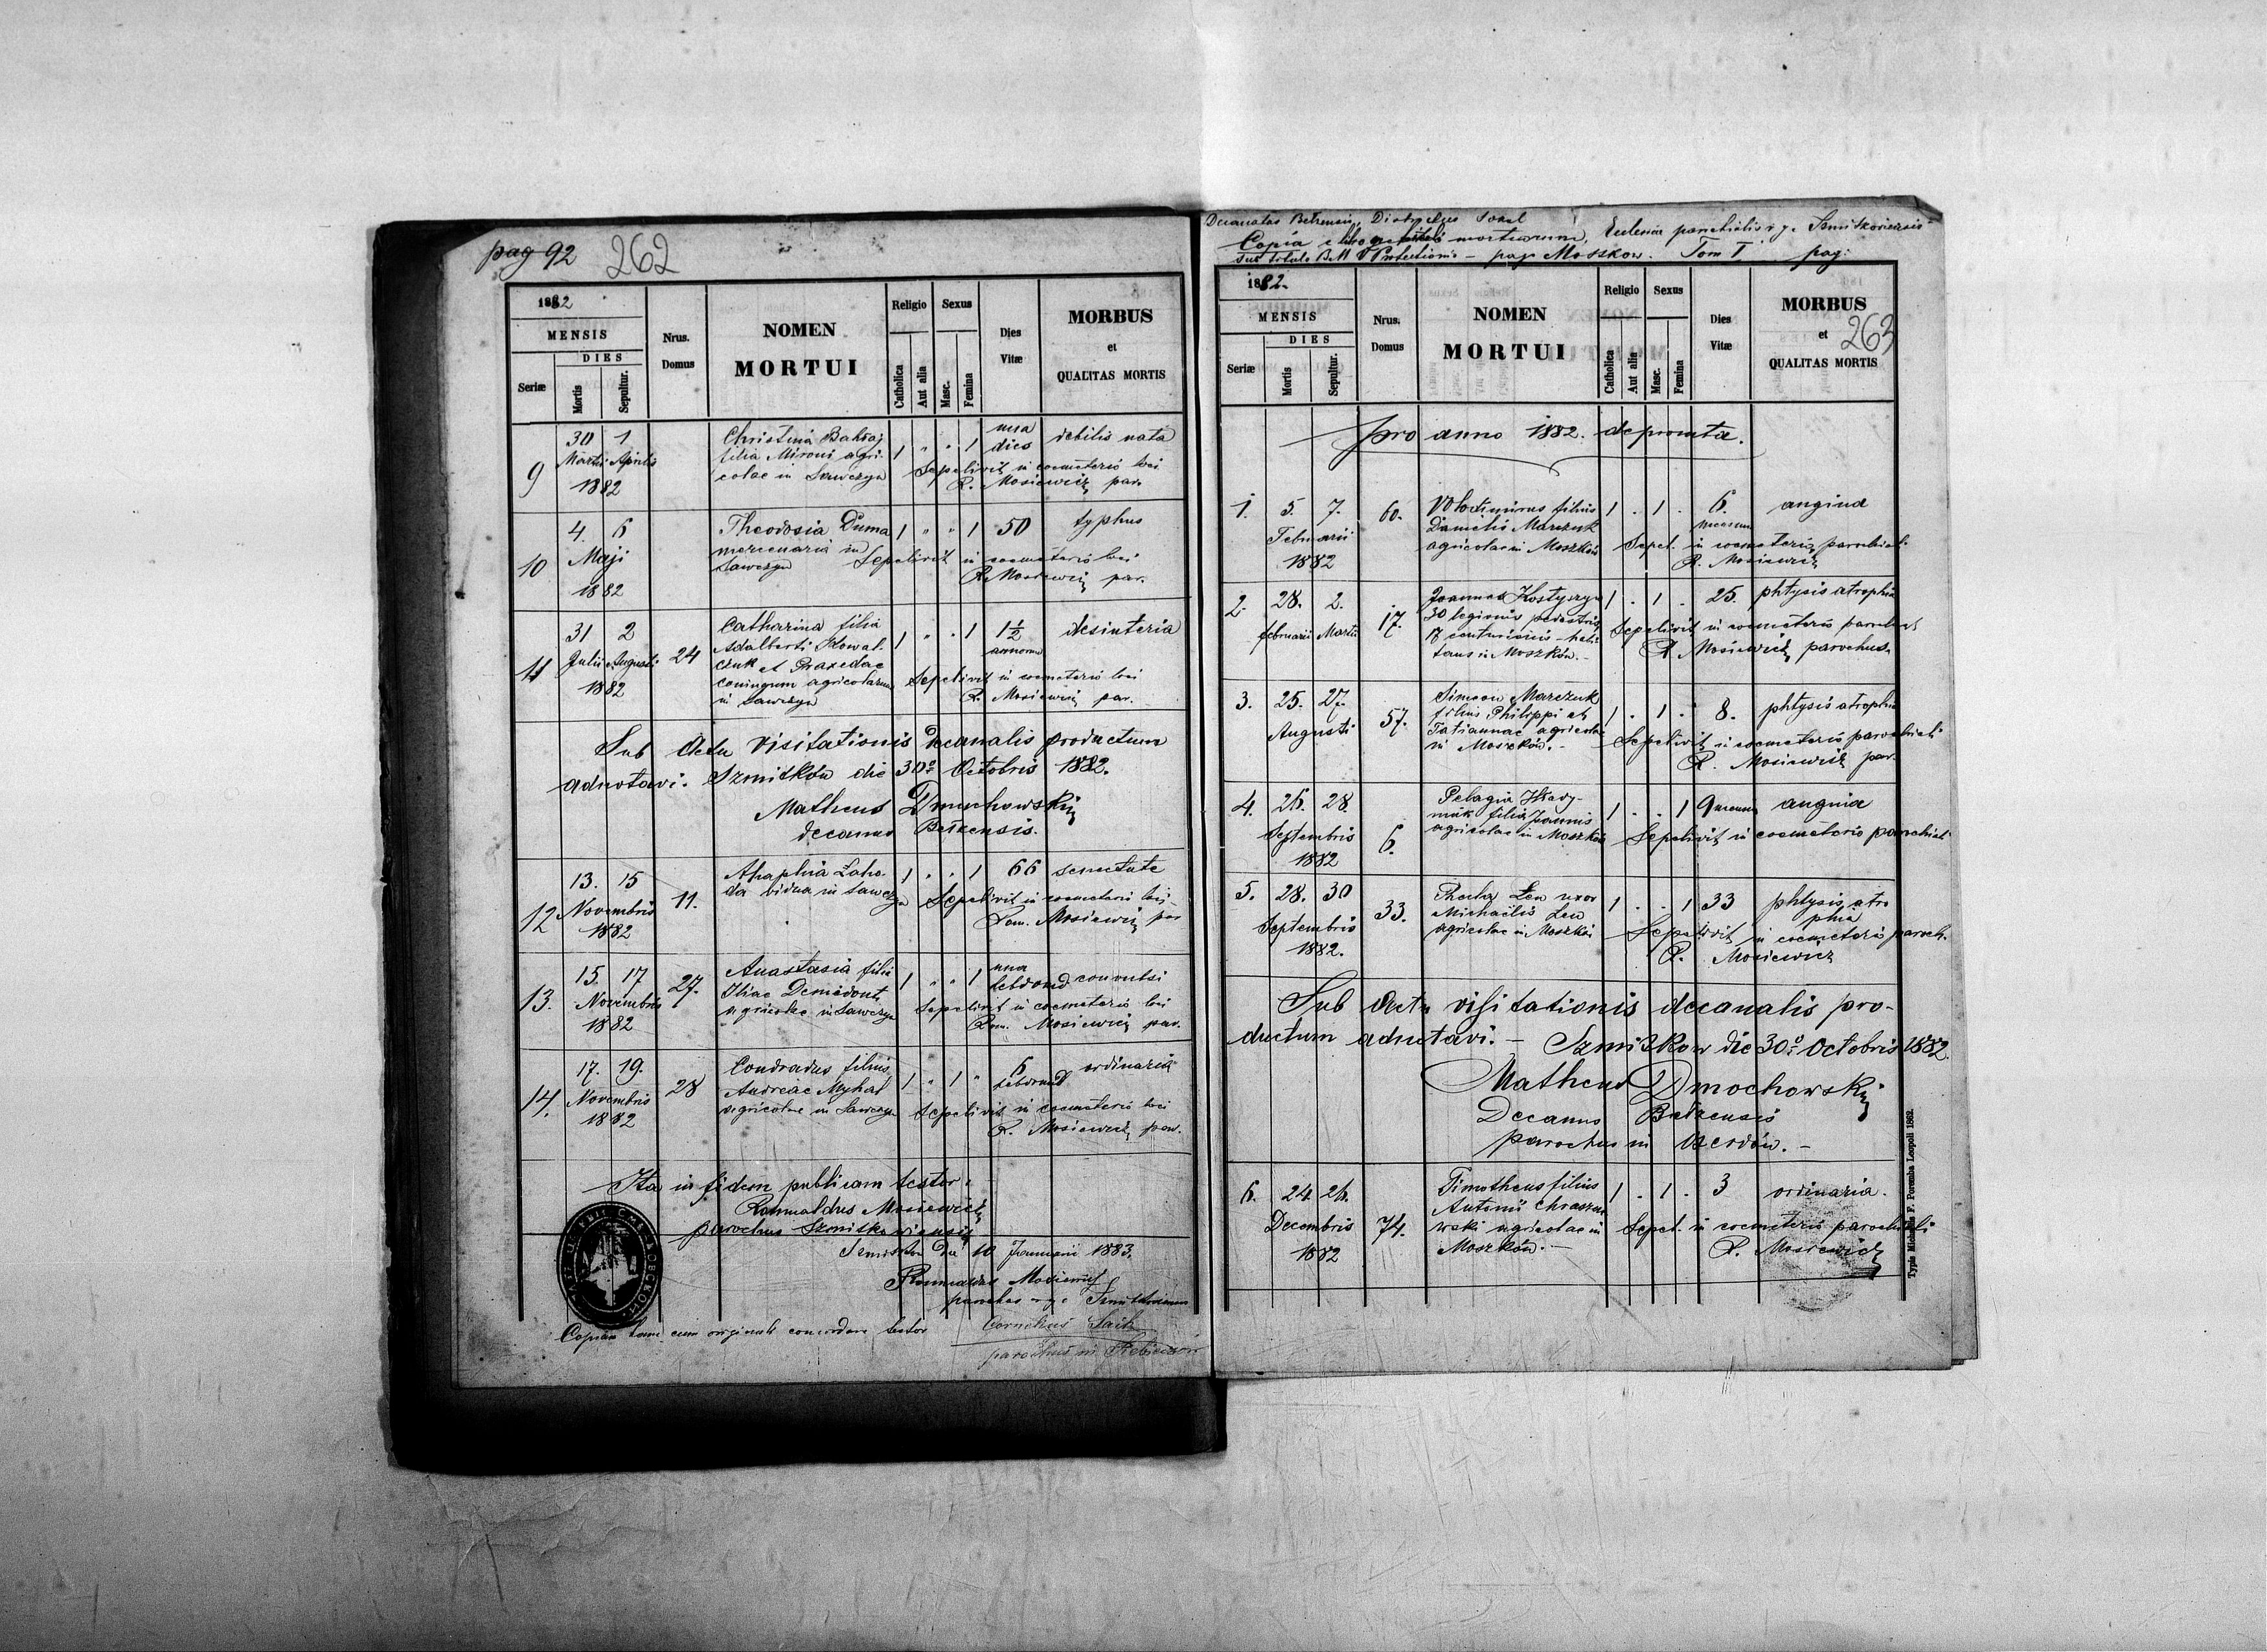 pag 92 262
1882
MENSIS
DIES
Seriæ Mortis Sepultur.
Nrus. Domus
NOMEN
MORTUI
Religio
Catholica Aut alia
Sexus
Masc. Femina
Dies Vitæ
MORBUS
et
QUALITAS MORTIS
9 30 1 Christina 1 " " 1 una dies debilis nata
Martii Aprilis filia Mironi agri-
1882 colae in Sawczyn Sepelivit in coemeterio loci
R. Mosiewicz par.
10 4. 6 Theodosia Duma 1 " " 1 50 typhus
Maji mercenaria in
1882 Sawczyn Sepelivit in coemeterio loci
R. Mosiewicz par.
11 31 2 24 Catharina filia 1 " " 1 1½ annorum desinteria
Julii Augusti Adalberti Kowal-
1882 czuk et Praxedae
coniugum agricolarum Sepelivit in coemeterio loci
in Sawczyn R. Mosiewicz par.
Sub Actu visitationis decanalis productum
adnotavi. Szmitków die 30º Octobris 1882.
Matheus Dmochowskij
decanus Bełzensis.
12 13. 15 11. Ahaphia Laho- 1 " " 1 66 senectute
Novembris da vidua in Sawczyn Sepelivit in coemeterio loci
1882 Rom. Mosiewicz par
13. 15. 17 27. Anastasia filia 1 " " 1 una hebdomad convulsi
Novembris Iliae
1882 agricolae in Sawczyn Sepelivit in coemeterio loci
Rom. Mosiewicz par.
14. 17. 19. 28 Condradus filius 1 " 1 " 6 hebdomad ordinaria
Novembris Andreae Myhal
1882 agricolae in Sawczyn Sepelivit in coemeterio loci
R. Mosiewicz par.
Ita in fidem publicam testor.
Romualdus Mosiewicz
parochus Szmitkoviensis
10 Januarii 1883.
Romualdus Mosiewicz
parochus
Copiam hanc cum originali concordare testor Cornelius
parochus in
Decanatus Bełzensis, Sokal
Copia e libro mortuorum, Ecclesiae parochialis r. g. Szmitkoviensis
sub titulo B. M. V Protectionis - pago Moszkow. Tom I pag:
263
1882.
MENSIS
DIES
Seriæ Mortis Sepultur.
Nrus. Domus
NOMEN
MORTUI
Religio
Catholica Aut alia
Sexus
Masc. Femina
Dies Vitæ
MORBUS
et
QUALITAS MORTIS
pro anno 1882. depromta.
1. 5. 7. 60. Wołodimirus filius 1 . 1 . 6. mensium angina
Februarii Danielis Marczuk
1882 agricolae in Moszków Sepel. in coemeterio parochiali
R. Mosiewicz
2. 28. 2. 17. Joannes Kostyszyn 1 . 1 . 25. phtysis atrophia
februarii Martii 30 legionis pedestris
17 centurionis - habi- Sepelivit in coemeterio parochiali
tans in Moszków. - R. Mosiewicz parochus
3. 25. 27. 57. Simeon Marczuk 1 . 1 . 8. phtysis atrophia
Augusti filius Philippi et
Tatiannae agricolae
in Moszków. - Sepelivit in coemeterio parochiali
R. Mosiewicz par.
4. 26. 28. 6. Pelagia Hłady- 1 . . 1 9 mensium angina
Septembris niuk filia Joannis
1882 agricolae in Moszków Sepelivit in coemeterio parochiali
5. 28. 30 33. Thecla Leu uxor 1 . . 1 33 phtysis atro
Septembris Michaëlis Leu phia
1882. agricolae in Moszków Sepelivit in coemeterio paroch.
R. Mosiewicz
Sub Actu visitationis decanalis pro-
ductum adnotavi. - Szmitkow die 30º Octobris 1882.
Matheus Dmochowskij
Decanus Bełzensis
parochus in
6. 24. 26. 74. Timotheus filius 1 . 1 . 3 ordinaria.
Decembris Antonii Chraszcz
1882 wski agricolae in Sepel. in coemeterio parochiali
Moszków. - R. Mosiewicz
Typis Michaelis F. Poremba Leopoli 1862.